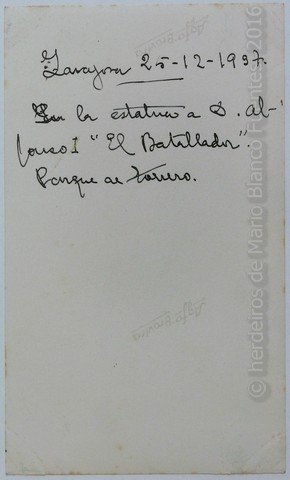 Zaragoza 25-12-1937.
En la estatua a D. Al-
fonso I "El Batallador".
Parque de Torrero.
Agfa-Brovira
Agfa-Brovira
© herdeiros de Mario Blanco Fuentes, 2016